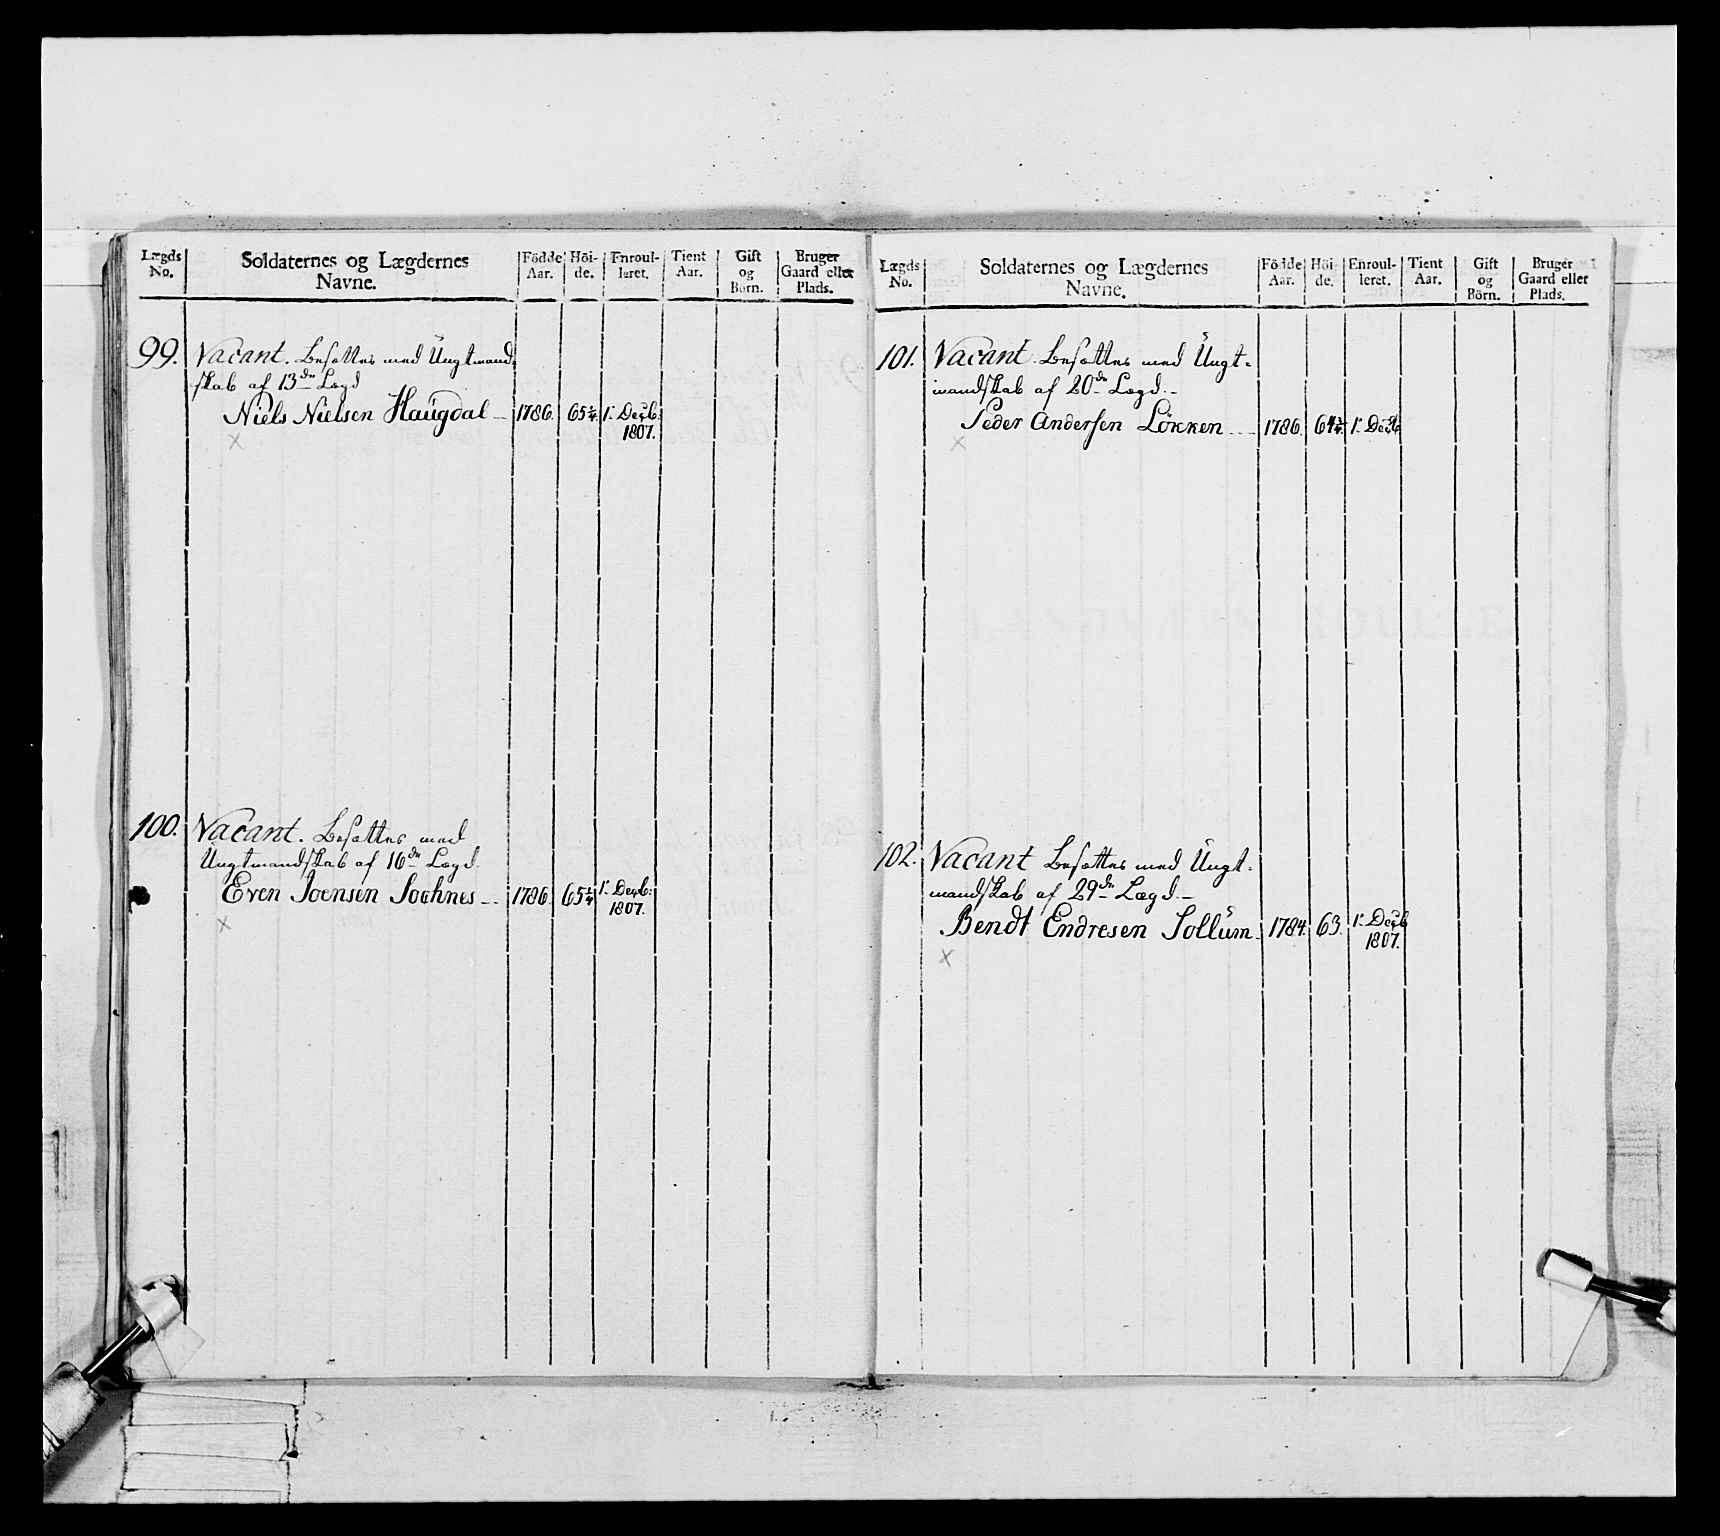 Lægds No. Soldaternes og Lægdernes Navne. Födde Aar. Höi-de. Enroul-leret. Tient Aar. Gift og Börn. Bruger Gaard eller Plads.
99. Vacant. Besættes med Ungtmand-
skab af 13de Lægd
Niels Nielsen Haugdal — 1786. 65¼. 1. Decb:
1807.
×
100. Vacant. Besættes med
Ungtmandskab af 16de Lægd.
Even Joensen — 1786. 65¼ 1. Decb:
1807.
×
Lægds No. Soldaternes og Lægdernes Navne. Födde Aar. Höi-de. Enroul-leret. Tient Aar. Gift og Börn. Bruger Gaard eller Plads.
101. Vacant. Besættes med Ungt-
mandskab af 20de Lægd. —
Peder Andersen Lökken — 1786. 1. Decb
×
102. Vacant Besættes med Ungt-
mandskab af 29de Lægd. —
Bendt Endresen Sollum. 1784. 63. 1. Decb
1807.
×